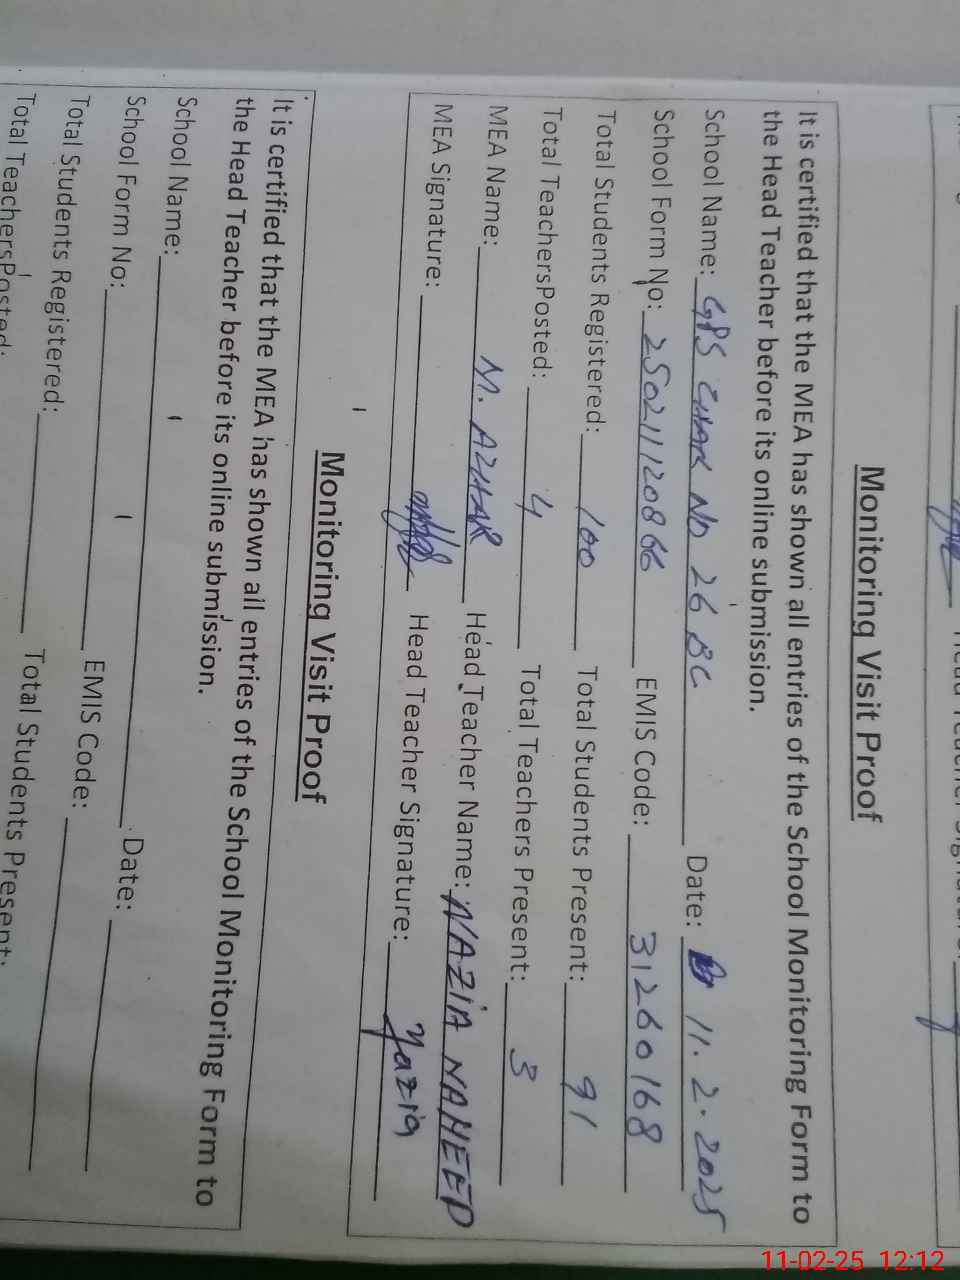 Monitoring Visit Proof
It is certified that the MEA has shown all entries of the School Monitoring Form to
the Head Teacher before its online submission.
School Name: GPS CHAK NO 26 BC Date: 11.2.2025
School Form No: 250211120866 EMIS Code: 31260168
Total Students Registered: 100 Total Students Present: 91
Total TeachersPosted: 4 Total Teachers Present: 3
MEA Name: M. AZHAR Head Teacher Name: NAZIA NAHEED
MEA Signature: Head Teacher Signature: Nazia
Monitoring Visit Proof
It is certified that the MEA has shown all entries of the School Monitoring Form to
the Head Teacher before its online submission.
School Name: Date:
School Form No: EMIS Code:
Total Students Registered: Total Students Present:
Total TeachersPosted:
11-02-25 12:12